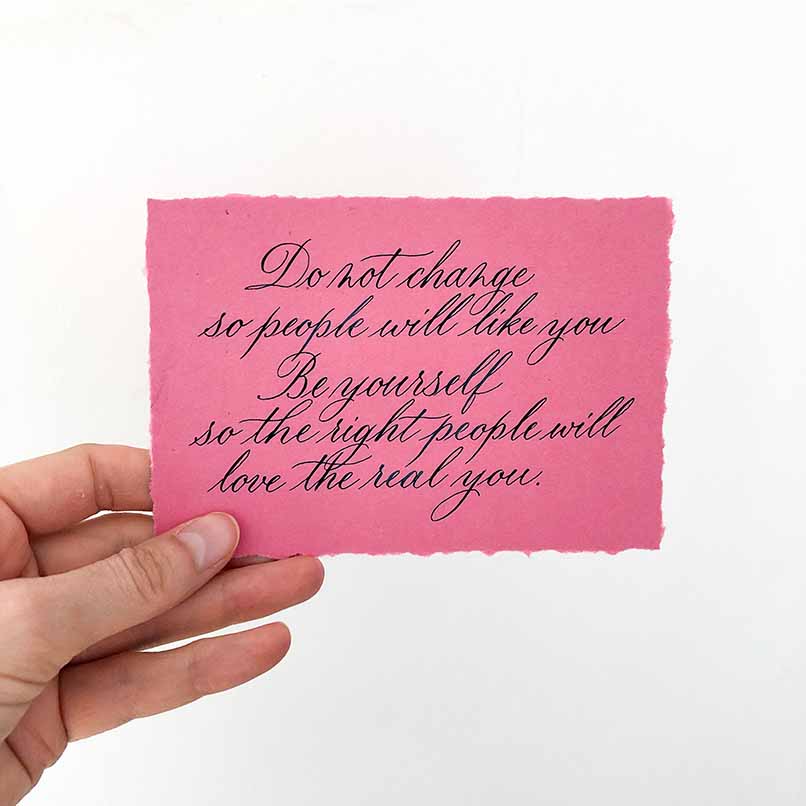 Do not change
so people will like you
Be yourself
so the right people will
love the real you.